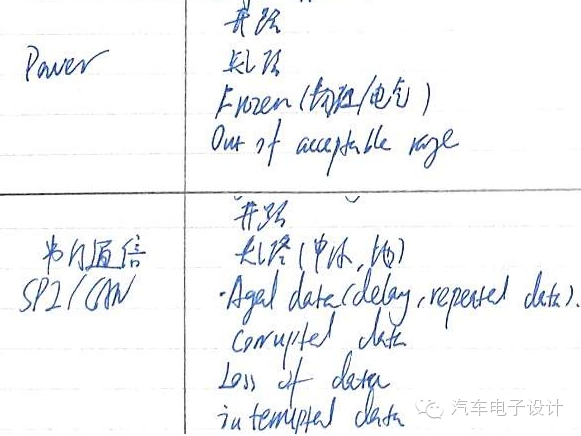 Power
开路
短路
Frozen (物理/电气)
Out of acceptable range
开路
串行通信
短路 (电源, 地)
SPI/CAN
·Aged data (delay, repeated data).
Corrupted data
Loss of data
interrupted data
汽车电子设计